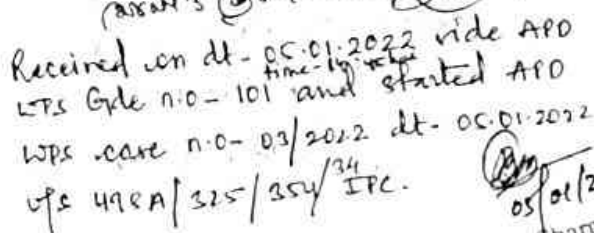 Received on dt - 05.01.2022 vide APD
time - 
LPS Gde n.o - 101 and started APD
WPS case n.o - 03/2022 dt - 05.01.2022
u/s 498A/325/354/34 IPC.
05/01/2